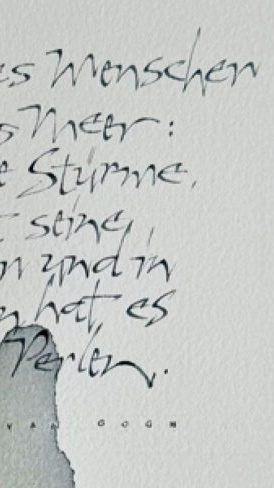 es Menschen
s Meer:
e Stürme,
t seine
n und in
n hat es
Perlen.
VAN GOGH